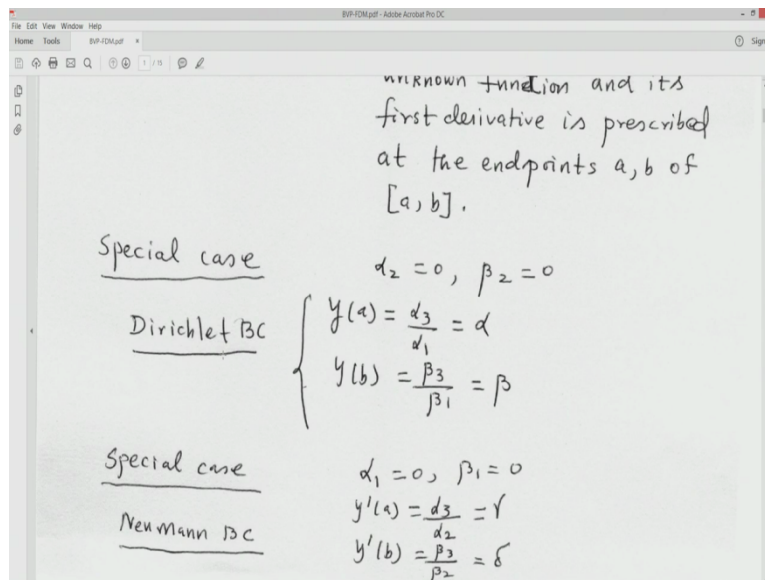 BVP-FDM.pdf - Adobe Acrobat Pro DC
File Edit View Window Help
Home Tools BVP-FDM.pdf × Sign
1 / 15
unknown function and its
first derivative is prescribed
at the endpoints a, b of
[a, b].
Special case α₂ = 0, β₂ = 0
Dirichlet BC { y(a) = α₃/α₁ = α
y(b) = β₃/β₁ = β
Special case α₁ = 0, β₁ = 0
Neumann BC y'(a) = α₃/α₂ = γ
y'(b) = β₃/β₂ = δ